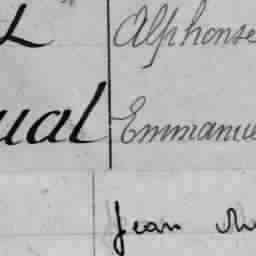 Alphonse
ual Emmanue
Jean